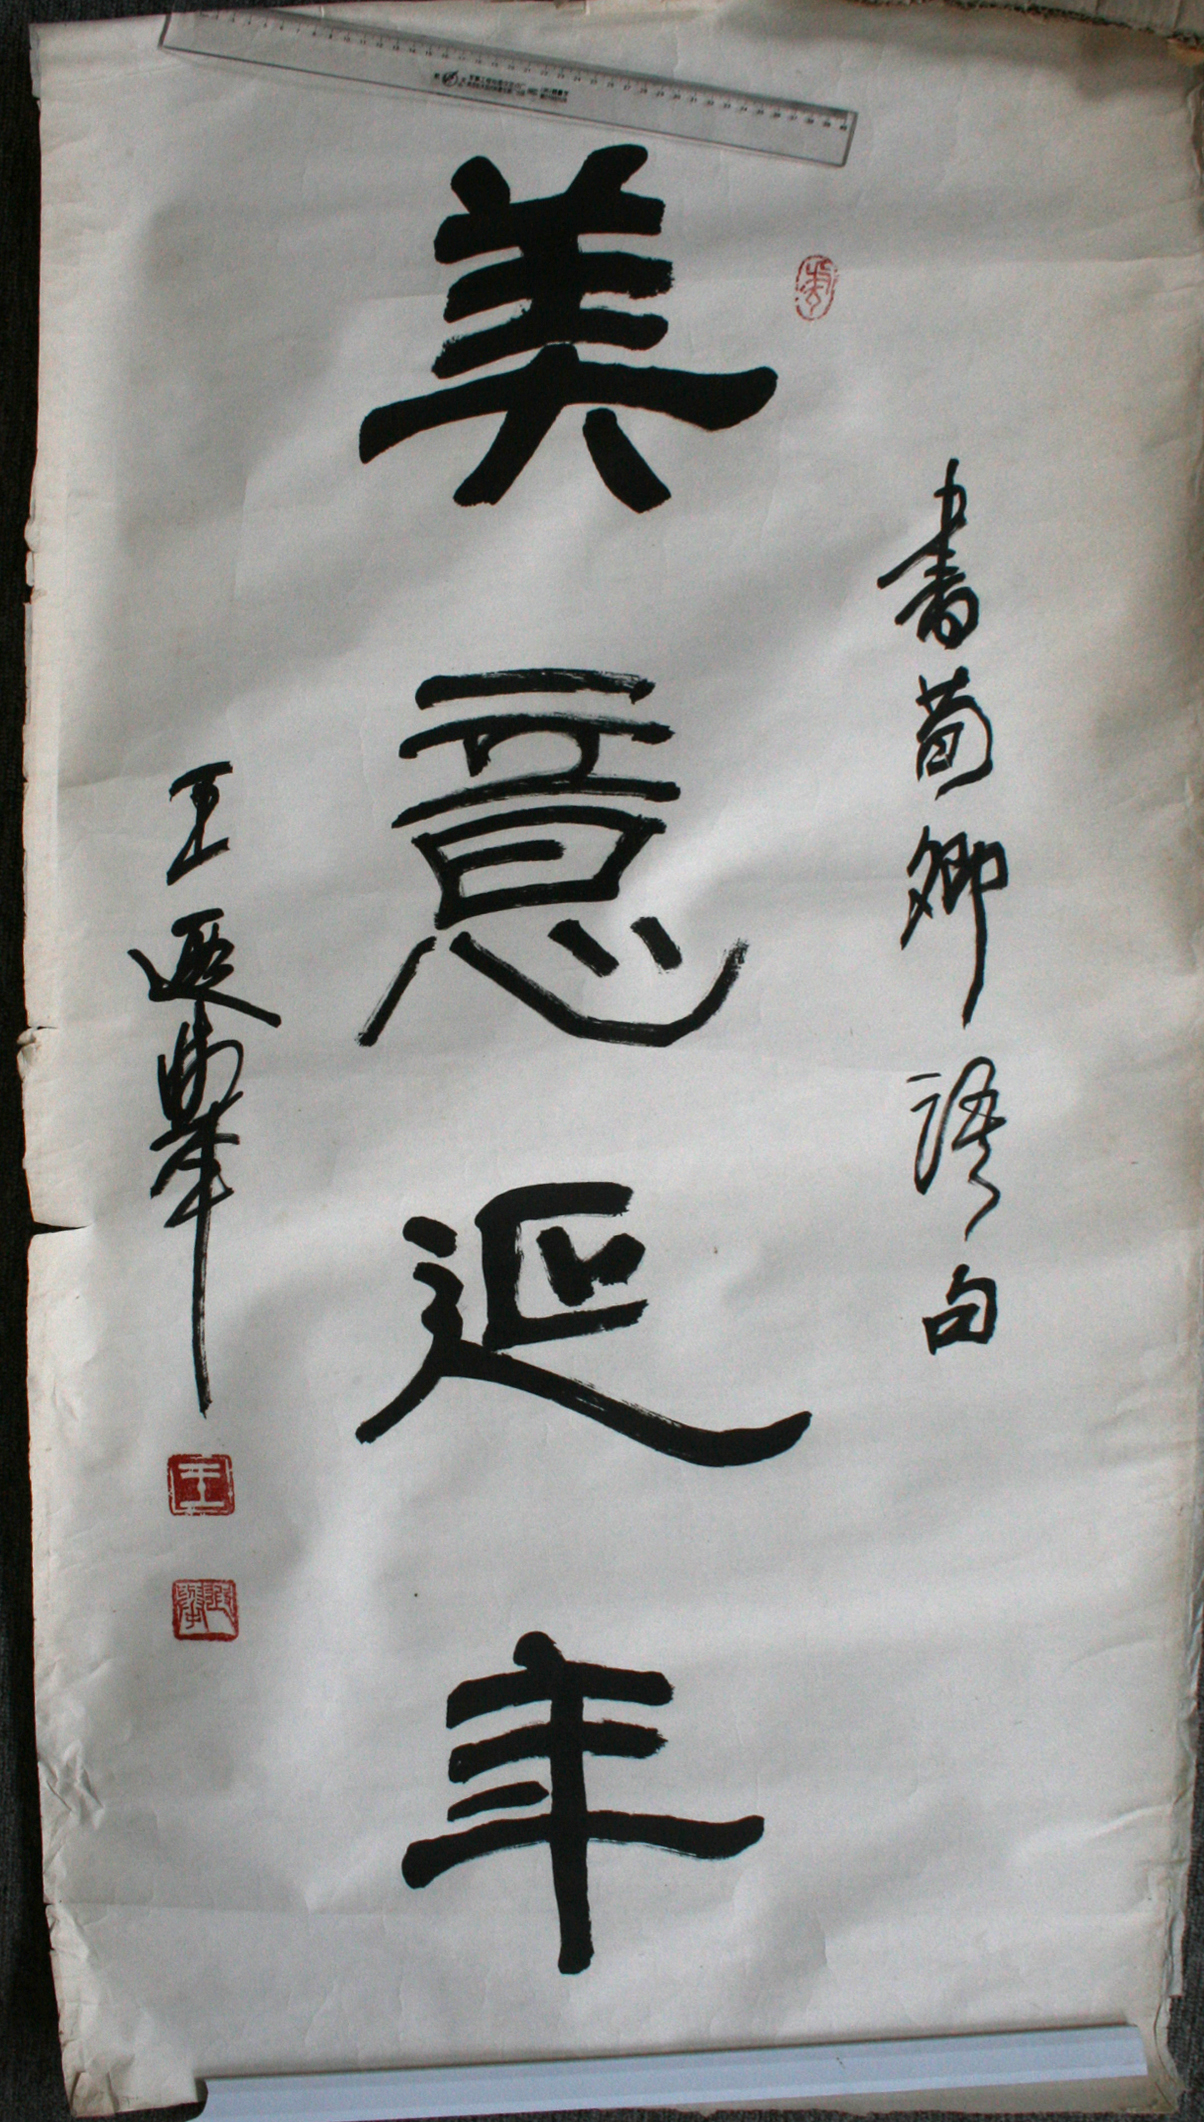 書荀卿語句
美意延年
王遐舉
王
遐舉